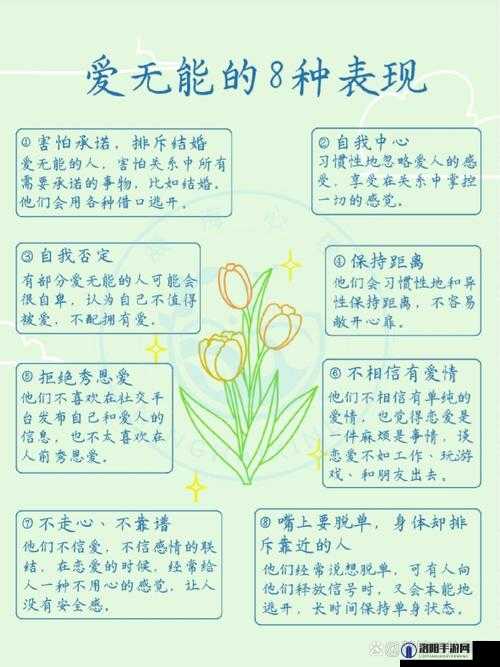 爱无能的8种表现
① 害怕承诺，排斥结婚
爱无能的人，害怕关系中所有
需要承诺的事物，比如结婚。
他们会用各种借口逃开。
② 自我中心
习惯性地忽略爱人的感
受，享受在关系中掌控
一切的感觉。
③ 自我否定
有部分爱无能的人可能会
很自卑，认为自己不值得
被爱，不配拥有爱。
④ 保持距离
他们会习惯性地和异
性保持距离，不容易
敞开心扉。
⑤ 拒绝秀恩爱
他们不喜欢在社交平
台发布自己和爱人的
信息，也不太喜欢在
人前秀恩爱。
⑥ 不相信有爱情
他们不相信有单纯的
爱情，也觉得恋爱是
一件麻烦是事情，谈
恋爱不如工作、玩游
戏、和朋友出去。
⑦ 不走心、不靠谱
他们不信爱，不信感情的联
结，在恋爱的时候，经常给
人一种不用心的感觉，让人
没有安全感。
⑧ 嘴上要脱单，身体却排
斥靠近的人
他们经常说想脱单，可有人向
他们释放信号时，又会本能地
逃开，长时间保持单身状态。
洛阳手游网